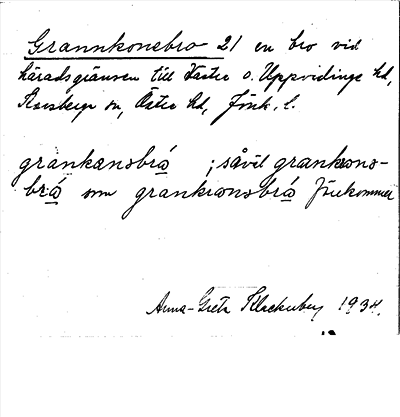 Grannkonebro 21 en bro vid
häradsgränsen till Västra o. Uppvidinge hd,
sn, Östra hd, Jönk. l.
grankansbrá ; såväl grankrons-
brá som grankronsbrá förekommer
Anna-Greta Klackenberg 1934.